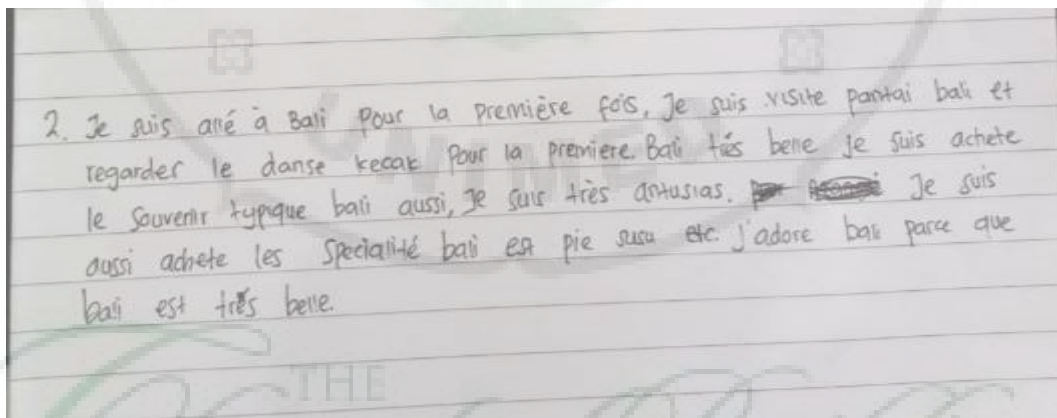 2. Je suis allé à Bali pour la première fois, Je suis visite pantai bali et
regarder le danse kecak pour la premiere. Bali tiés belle je suis achete
le souvenir typique bali aussi, Je suis très antusias. Je suis
aussi achete les specialité bali est pie susu etc. j'adore bali parce que
bali est très belle.
UNIMED
THE